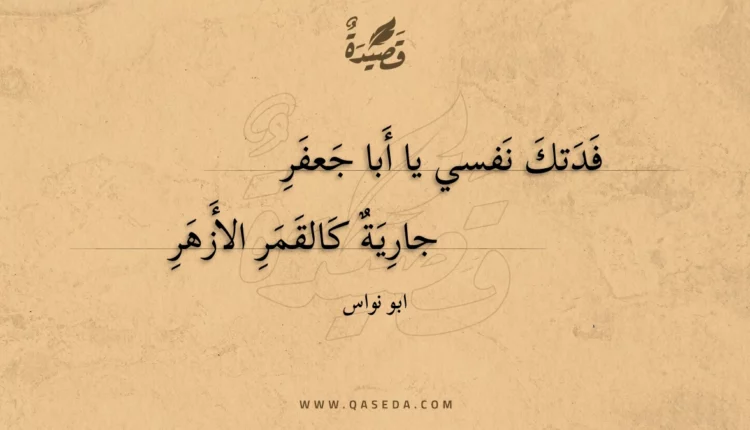 قَصِيدَةٌ
فَدَتكَ نَفسي يا أَبا جَعفَرِ
جارِيَةٌ كَالقَمَرِ الأَزهَرِ
ابو نواس
WWW.QASEDA.COM